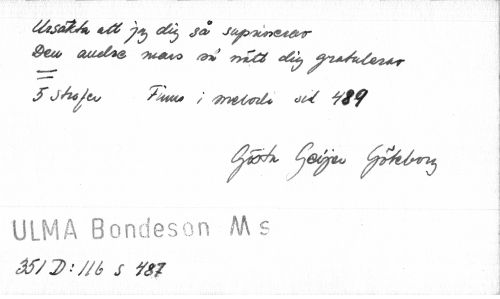 Ursäkta att jag dig så
Den andre mars så nätt dig gratulerar
5 strofer Finns i melodi sid 489
Gösta Geijer Göteborg
ULMA Bondeson Ms
351 D: 116 s 487